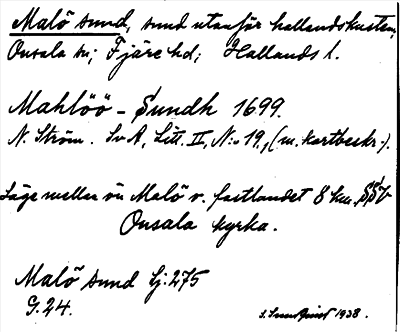 Malö sund, sund utanför hallandskusten,
Onsala sn; Fjäre hd; Hallands l.
Mahlöö – Sundh 1699.
N. Ström. SvA, Litt. II, N:o 19, (m. kartbeskr.).
Läge mellan ön Malö o. fastlandet 8 km. SSV
Onsala kyrka.
Malö sund Ej: 275
G. 24.
1938.